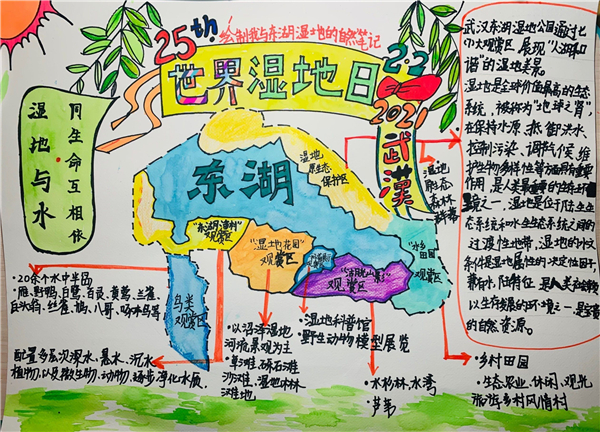 25th
绘制我与东湖湿地的自然笔记
世界湿地日
2.2
2021
武漢
湿地与水
同生命互相依
东湖
湿地
原生态
保护区
湿地
群落
"东湖渔村"
观赏区
"湿地花园"
观赏区
观赏区
"水乡
田园"
观赏区
鸟类
观赏区
·20余个水中半岛
·雁、野鸭、白鹭、百灵、黄莺、兰雀、
八哥、
配置多层次深水、悬水、沉水
植物,以及微生物、动物,逐步净化水质。
·以沼泽湿地
河流景观为主
·草滩、砾石滩
沙滩、湿地林
滩地
·湿地科普馆
·野生动物模型展览
·水杉林、水湾
·芦苇
·乡村田园
·生态农业、休闲、观光
旅游乡村风情村
武汉东湖湿地公园通过七
个大观赏区,展现"人湖和
谐"的湿地美景。
湿地是全球价值最高的生态
系统,被称为"地球之肾"
在保持水源、抵御洪水、
控制污染、调节气候、维
护生物多样性等方面有重要
作用,是人类最重要的生存环
境之一,湿地是位于陆生生
态系统和水生生态系统之间的
过渡性地带,湿地的水文
条件是湿地属性的决定性因子,
以生存发展的环境之一,是宝贵
的自然资源。